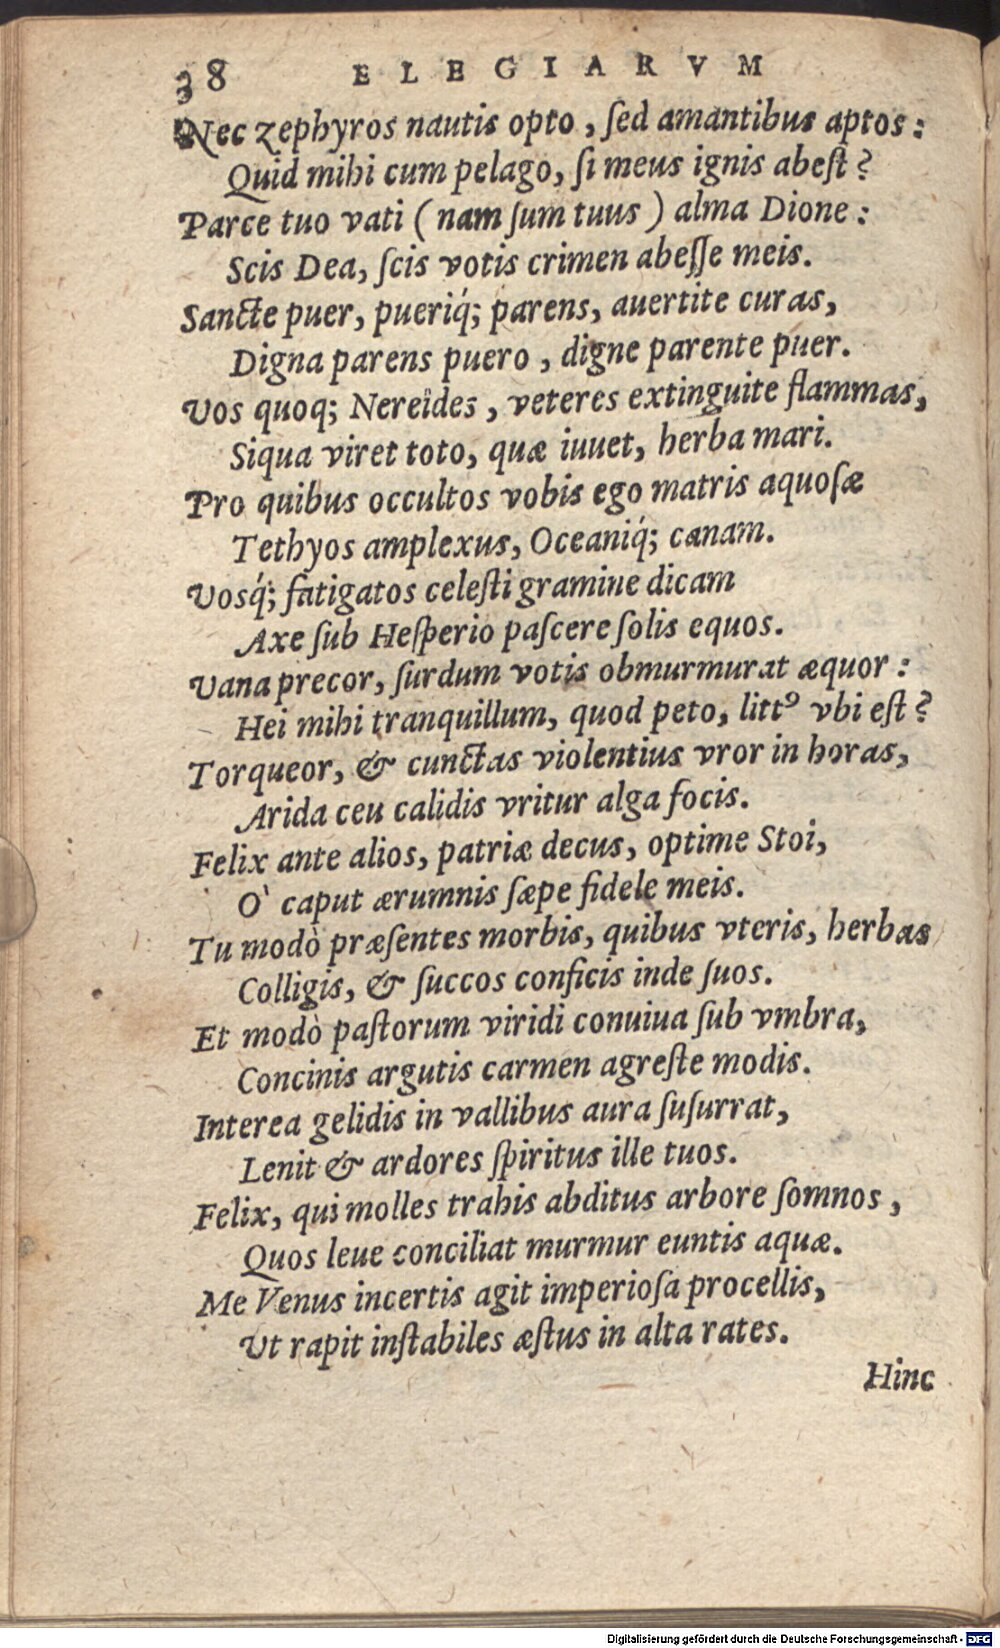 38 ELEGIARVM
Nec zephyros nautis opto, ſed amantibus aptos:
Quid mihi cum pelago, ſi meus ignis abeſt?
Parce tuo vati (nam ſum tuus) alma Dione:
Scis Dea, ſcis votis crimen abeſſe meis.
Sancte puer, pueriq́; parens, auertite curas,
Digna parens puero, digne parente puer.
Vos quoq; Nereîdes, veteres extinguite flammas,
Siqua viret toto, quæ iuuet, herba mari.
Pro quibus occultos vobis ego matris aquoſæ
Tethyos amplexus, Oceaniq́; canam.
Vosq́; fatigatos celeſti gramine dicam
Axe ſub Heſperio paſcere ſolis equos.
Vana precor, ſurdum votis obmurmurat æquor:
Hei mihi tranquillum, quod peto, littꝰ vbi eſt?
Torqueor, & cunctas violentius vror in horas,
Arida ceu calidis vritur alga focis.
Felix ante alios, patriæ decus, optime Stoi,
O` caput ærumnis ſæpe fidele meis.
Tu modò præſentes morbis, quibus vteris, herbas
Colligis, & ſuccos conficis inde ſuos.
Et modò paſtorum viridi conuiua ſub vmbra,
Concinis argutis carmen agreſte modis.
Interea gelidis in vallibus aura ſuſurrat,
Lenit & ardores ſpiritus ille tuos.
Felix, qui molles trahis abditus arbore ſomnos,
Quos leue conciliat murmur euntis aquæ.
Me Venus incertis agit imperioſa procellis,
Vt rapit inſtabiles æſtus in alta rates.
Hinc
Digitalisierung gefördert durch die Deutsche Forschungsgemeinschaft - DFG